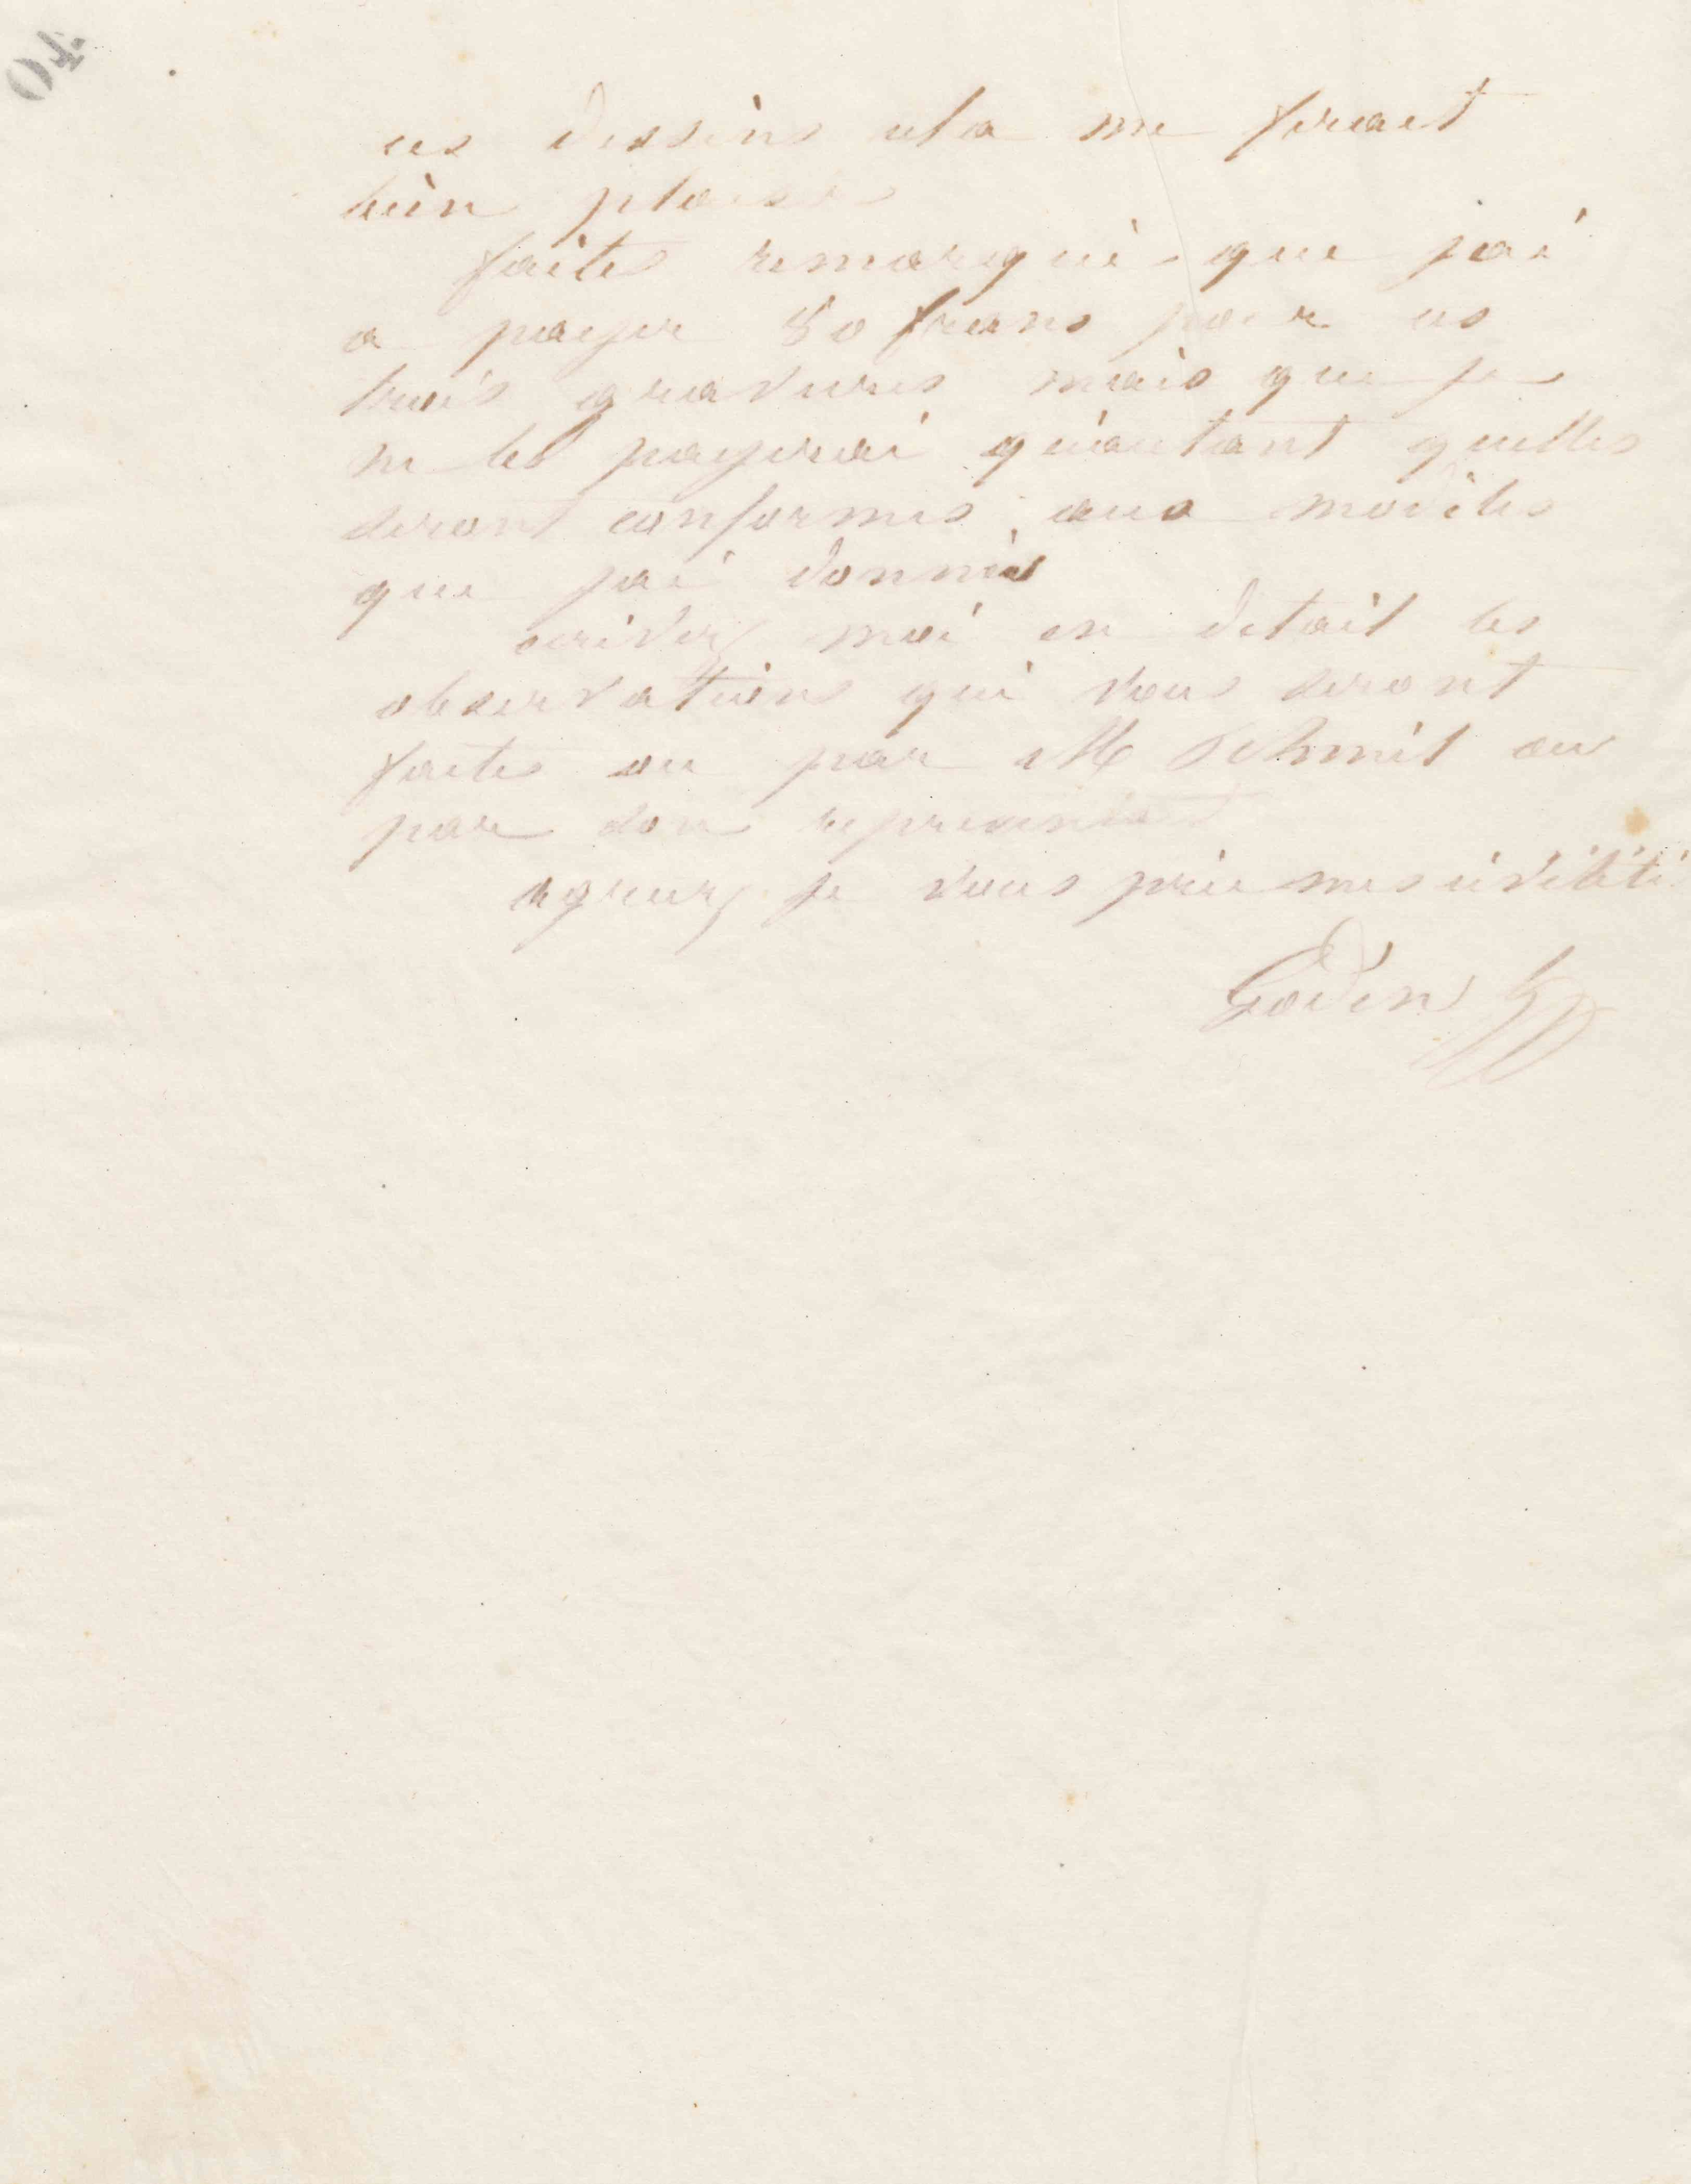 40
ces dessins cela me ferait
bien plaisir
faites remarquer que jai
a payer 80 frans pour ces
trois gravures mais que je
ne les payerai qu'autant quelles
seront conformes aux modèles
que jai donnés
ecrivez moi en detail les
observations qui vous seront
faites ou par M Schmit ou
par son representant
agreez je vous prie mes civilités
Godin